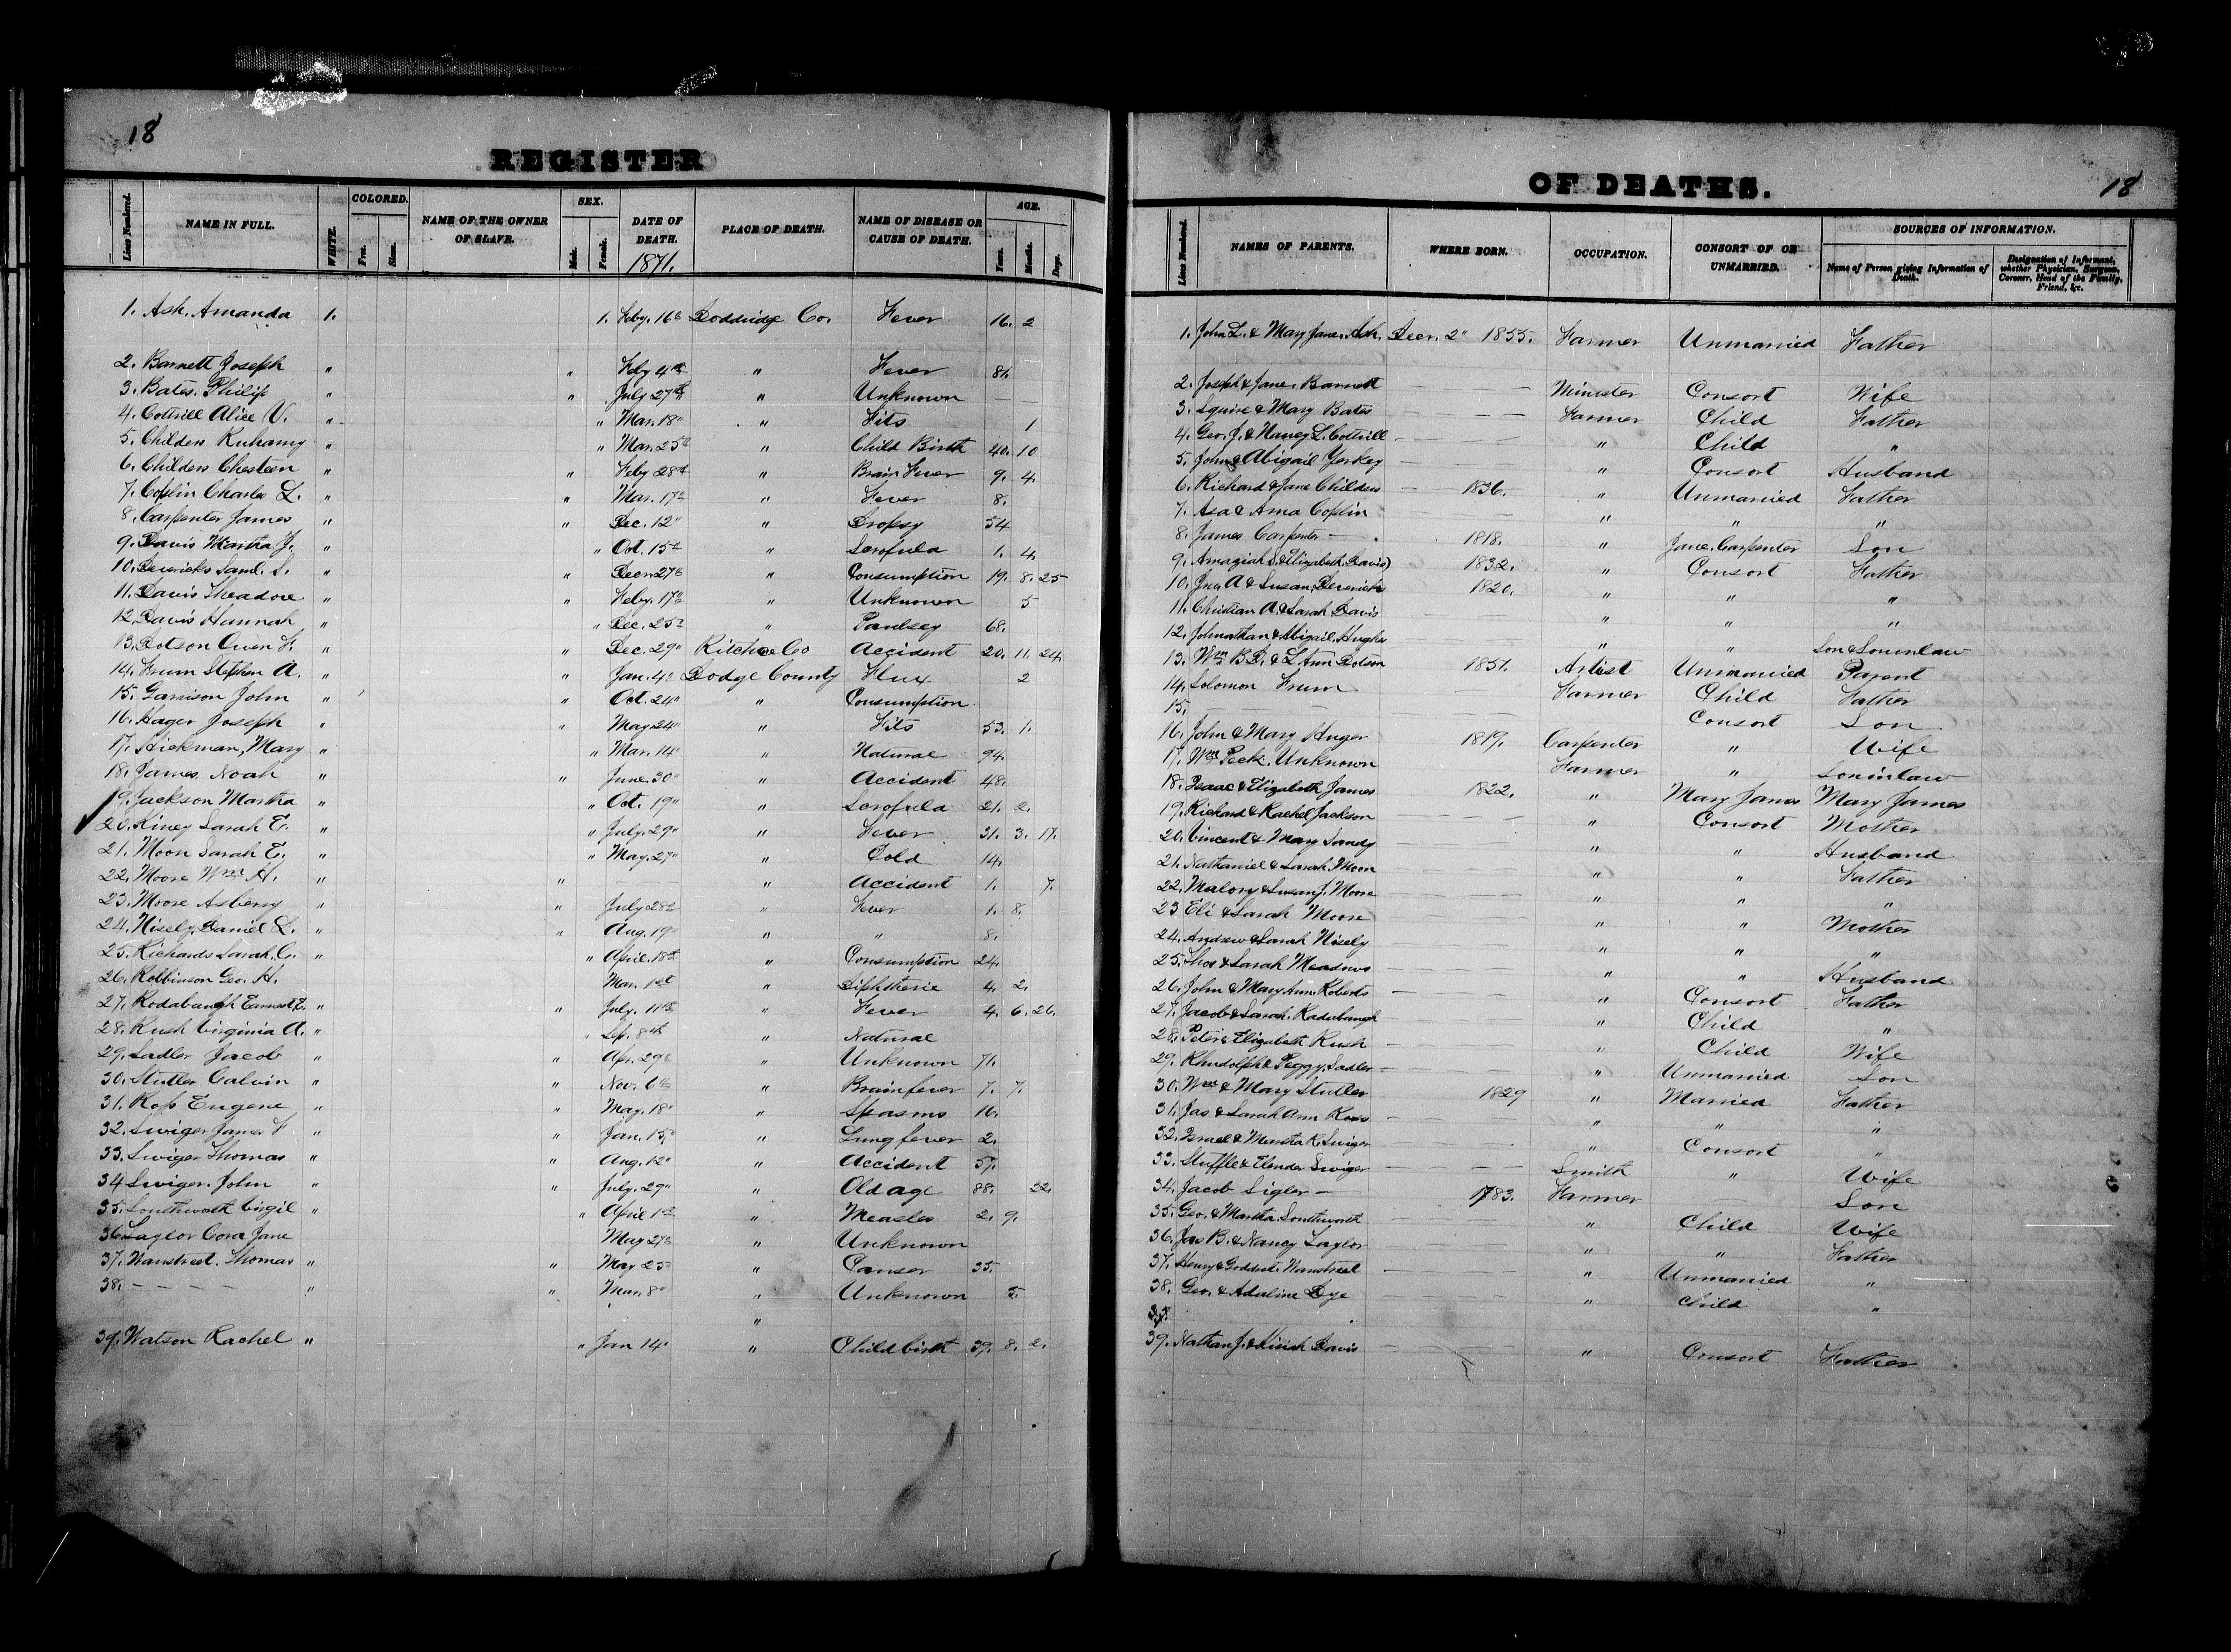 18
REGISTER
Lines Numbered. NAME IN FULL. WHITE. COLORED. Free. Slave. NAME OF THE OWNER OF SLAVE. SEX. Male. Female. DATE OF DEATH. 1871. PLACE OF DEATH. NAME OF DISEASE OR CAUSE OF DEATH. AGE. Years. Months. Days.
1. Ash, Amanda 1. 1. Feby. 16" Doddridge Co. Fever 16. 2
2. Barnett Joseph " " Feby 4th " Fever 81.
3. Bates, Philip " " July 27th " Unknown — —
4. Cottrill Alice V. " " Mar. 18" " Fits 1
5. Childers Ruhamy " " Mar. 25th " Child Birth 40. 10
6. Childers Chesteen " " Feby 28th " Brain Fever 9. 4.
7. Coplin Charles L. " " Mar. 17th " Fever 8.
8. Carpenter James " " Dec. 12" " Dropsy 54
9. Davis Martha J. " " Oct. 15th " Scrofula 1. 4.
10. Devericks Saml. S. " " Decr. 27th " Consumption 19. 8. 25
11. Davis Theadore " " Feby. 17th " Unknown 5
12. Davis Hannah " " Dec. 25th " Paulsey 68.
13. Dotson Owen F. " " Dec. 29" Ritchie Co Accident 20. 11. 24
14. Frum Stephen A. " " Jan. 4" Dodge County Flux 2
15. Garrison John " " Oct. 24" " Consumption
16. Hager Joseph " " May 24" " Fits 53. 1.
17. Hickman, Mary " " Mar. 14" " Natural 94.
18. James Noah " " June 30" " Accident 48.
19. Jackson Martha " " Oct. 19" " Scrofula 21. 2.
20. Kiney Sarah E. " " July. 29" " Fever 31. 3. 17.
21. Moon Sarah E. " " May. 27" " Cold 14.
22. Moore Wm H. " " — " Accident 1. 7.
23. Moore Asberry " " July 28th " Fever 1. 8.
24. Nisely, Daniel L. " " Aug. 19" " " 8.
25. Richards Sarah C. " " April. 18th " Consumption 24.
26. Robbinson Geo. H. Mar. 1st " Diphtherie 4. 2.
27. Rodabaugh Earnest E. " " July. 11th " Fever 4. 6. 26.
28. Rush Virginia A. " " Sep. 8th " Natural
29. Sadler Jacob " " Apr. 29th " Unknown 71.
30. Stutler Calvin " " Nov. 6th " Brain fever 7. 7.
31. Ross Eugene " " May. 18" " Spasms 16.
32. Swiger James F " " Jan. 15" " Lung fever 2.
33. Swiger Thomas " " Aug. 12" " Accident 57.
34 Swiger. John " " July. 29" " Old age 88. 22.
35. Southworth Virgil " " April 1st " Measles 2. 9.
36 Taylor Cora Jane May 27th " Unknown
37. Wanstreet. Thomas " " May 25" " Canser 35.
38. — — — — " " Mar. 8" " Unknown 5.
"
39. Watson Rachel " " Jan 14" " Child birth 39. 8. 2.
OF DEATHS.
18
Lines Numbered. NAMES OF PARENTS. WHERE BORN. OCCUPATION. CONSORT OF OR UNMARRIED. SOURCES OF INFORMATION. Name of Person giving Information of Death. Designation of Informant, whether Physician, Surgeon, Coroner, Head of the Family, Friend, &c.
1. John L. & Mary Jane. Ash. Decr. 2" 1855. Farmer Unmarried Father
2. Joseph & Jane. Barnett — — — Minister Consort Wife
3. Squire & Mary Bates — — — Farmer Child Father
4. Geo. J. & Nancy L. Cottrill — — — " Child "
5. John & Abigail Yerkey — — " Consort Husband
6. Richard & Jane Childers — 1836. " Unmarried Father
7. Asa & Ama Coplin — — — " " "
8. James Carpenter — 1818. " Jane. Carpenter Son
9. Amaziah S. & Elizabeth Davis 1832. " Consort Father
10. Jno. A & Susan Devericks 1820. " " "
11. Christian A. & Sarah Davis — — — " " "
12. Johnathan & Abigail. Hughs — — — " " Son & Soninlaw
13. Wm B. D. & L Ann Dotson 1851. Artist Unmarried Parent
14. Solomon Frum — — Farmer Child Father
15. — — — — Consort Son
16. John & Mary Hager 1819. Carpenter " Wife
17. Wm Peck. Unknown Farmer " Soninlaw
18. Isaac & Elizabeth James 1822. " Mary James Mary James
19. Richard & Rachel Jackson — — — " Consort Mother
20. Vincent & Mary Sandy — — — " " Husband
21. Nathaniel & Sarah. Moon — — — " " Father
22. Melory & Susan J. Moore — — — " " "
23 Eli & Sarah Moore — — — Mother
24. Andrew & Sarah Nisely — — — " " "
25. Thos & Sarah Meadows — — — " " Husband
26. John & Mary Ann. Roberts — — — " Consort Father
27. Jacob & Sarah. Radabaugh — — — " Child "
28. Peter & Elizabeth Rush — — — " Child Wife
29. Rhudolph & Peggy. Sadler — — — " Unmarried Son
30. Wm & Mary Stutler 1829 " Married Father
31. Jas & Sarah Ann Ross — — — " " "
32. Israel & Martha K. Swiger — — — " Consort "
33. Stuffle & Elender Swiger — — — Smith " Wife
34. Jacob Sigler — 1783. Farmer Son
35. Geo. & Martha. Southworth — — — " Child Wife
36. Jas B. & Nancy Taylor — — — " " Father
37. Henry & Wanstreet — — — " Unmarried "
38. Geo. & Adaline Dye — — — " Child "
39. Nathan J. & Davis — — — " Consort Father